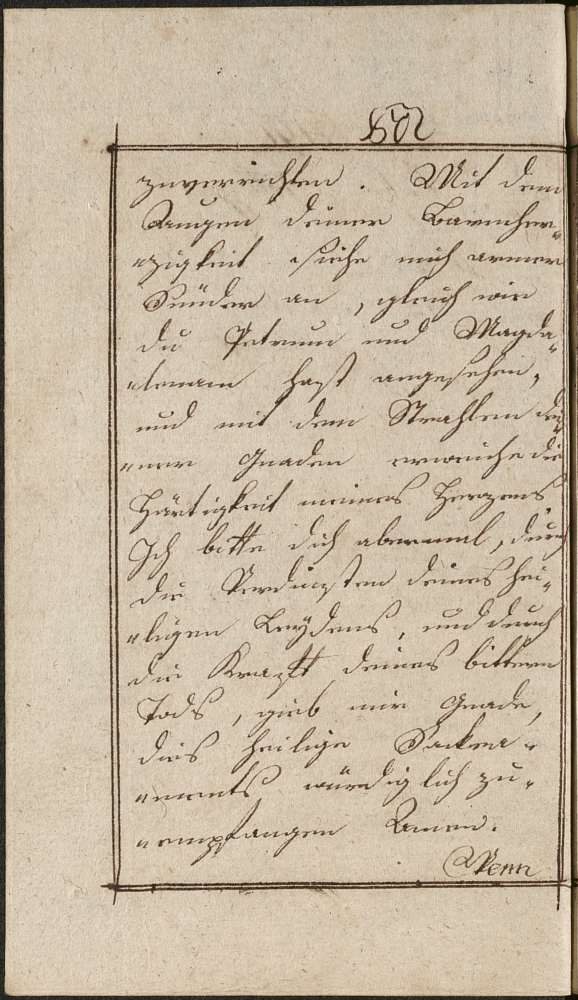 zuverrichten. Mit dem
Augen deiner Barmher„
„zigkeit siehe mich armen
Sünder an, gleich wie
du Petrum und Magda„
„lenam hast angesehen,
und mit dem Strahlen dei„
„ner Gnaden erweiche die
Härtigkeit meines Herzens
Ich bitte dich abermal, durch
die Verdinsten deines hei„
„ligen Leÿdens, und durch
die Krafft deines bittern
Tods, gieb mir Gnade,
dies heilige Sackra„
„ments würdiglich zu„
„empfangen Amen.
Wenn